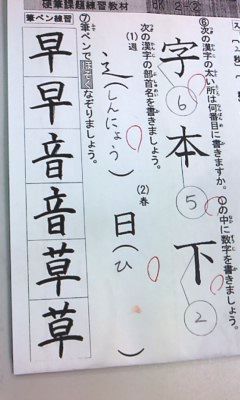 硬筆課題練習教材
⑥次の漢字の太い所は何番目に書きますか。○の中に数字を書きましょう。
字 6
本 5
下 2
次の漢字の部首名を書きましょう。
(1) 週
辶(しんにょう)
(2) 春
日(ひ)
⑦筆ペンでほそくなぞりましょう。
筆ペン練習
早
早
音
音
草
草